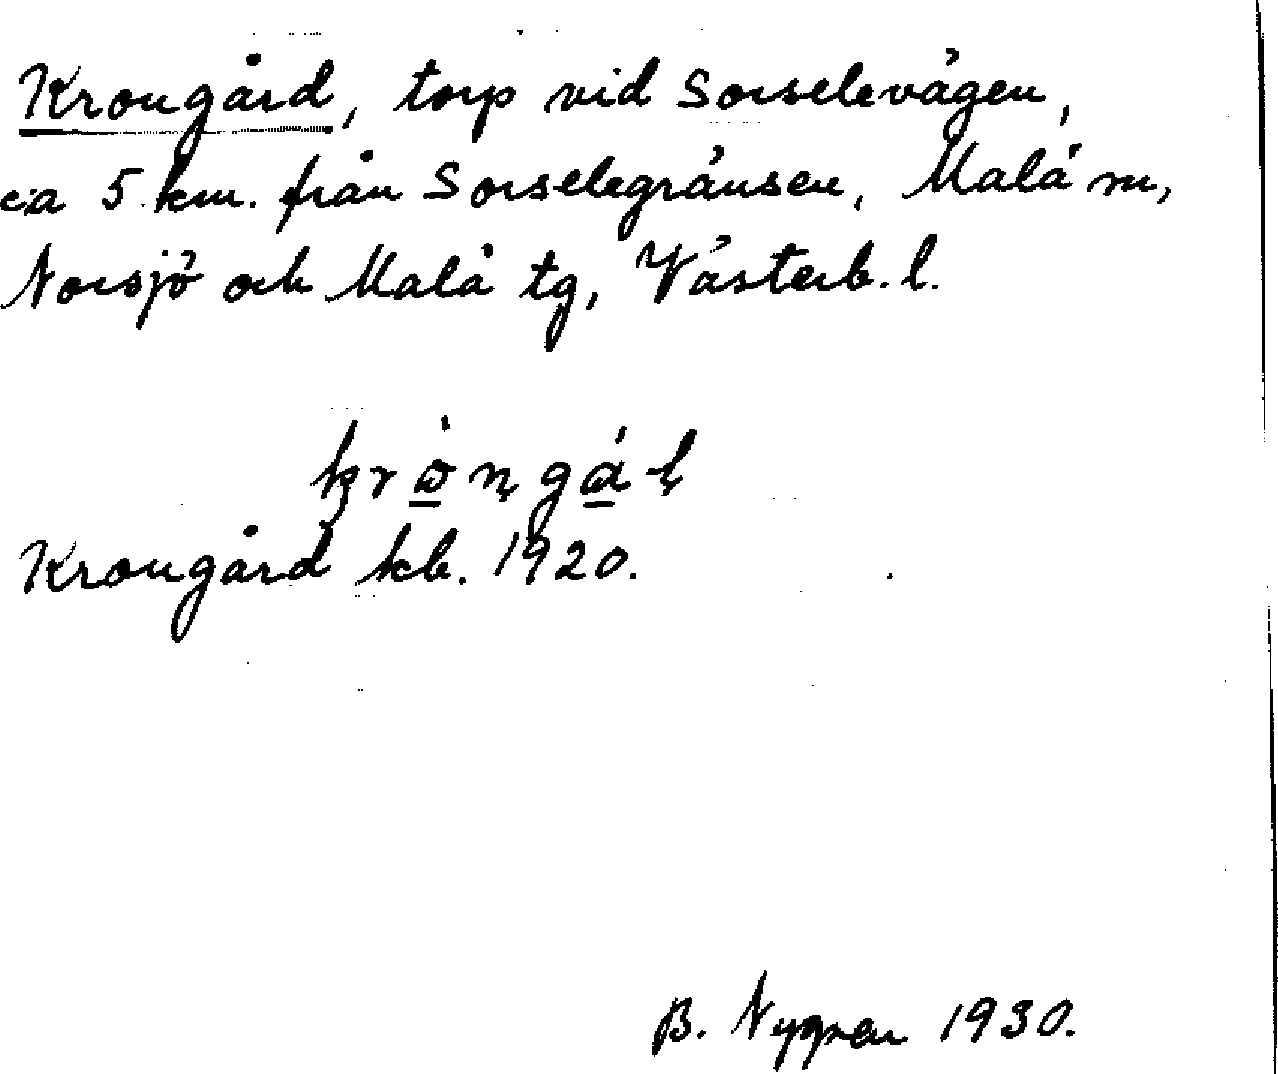 Krongård, torp vid Sorselevägen,
c:a 5 km. från Sorselegränsen, Malå sn,
Norsjö och Malå tg, Västerb. l.
Krongård kb. 1920.
B. Nygren 1930.